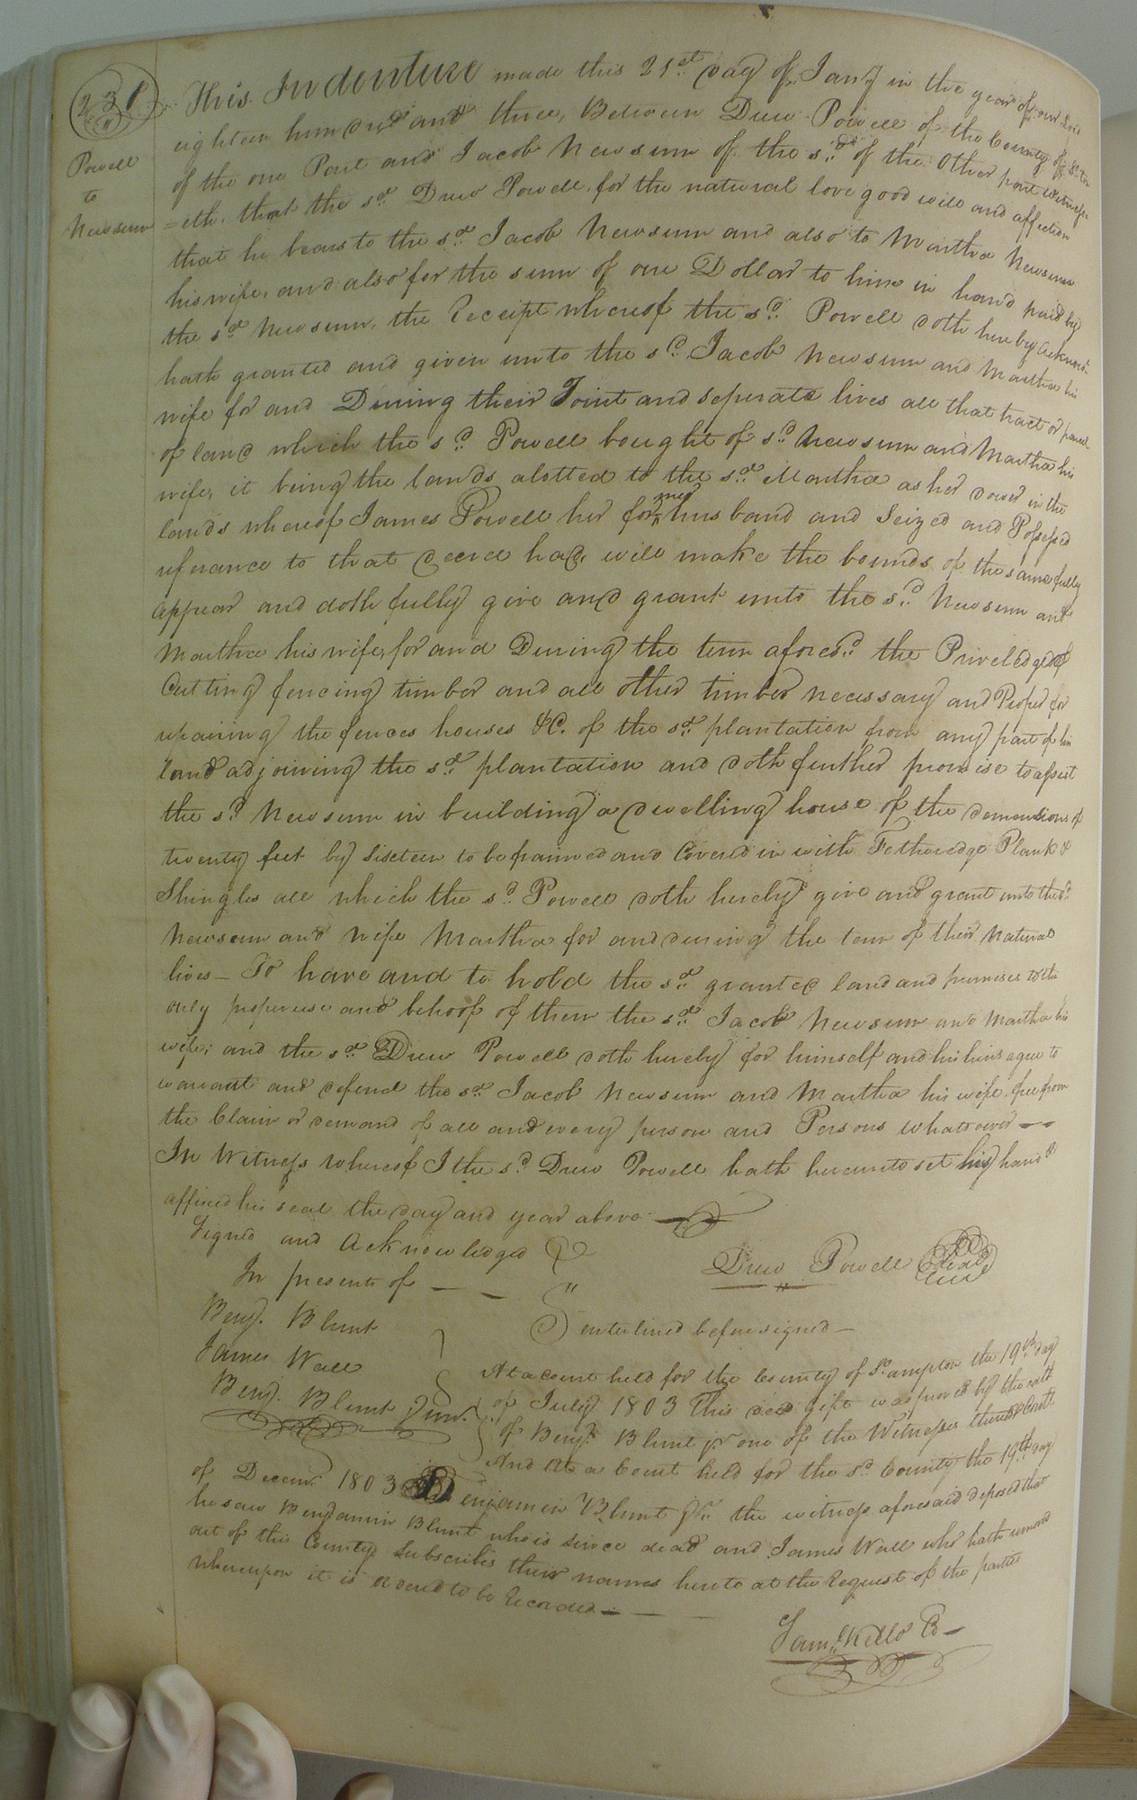 231
Powell
to
Newsum
This Indenture made this 21st day of Jany in the year of our Lord
eighteen hundred and three, Between Drew Powell of the County of So.ton
of the one Part and Jacob Newsum of the sd. of the Other part witness
=eth, that the sd. Drew Powell, for the natural love good will and affection
that he bears to the sd. Jacob Newsum and also to Martha Newsum
his wife, and also for the sum of one Dollar to him in hand paid by
the sd. Newsum, the Receipt whereof the sd. Powell doth hereby acknowd.
hath granted and given unto the sd. Jacob Newsum and Martha his
wife for and During their Joint and seperate lives all that tract or parcel
of land which the sd. Powell bought of sd. Newsum and Martha his
wife, it being the lands alotted to the sd. Martha as her dower in the
lands whereof James Powell her former husband and Seized and Possessed
referance to that deed had, will make the bounds of the same fully
appear and doth fully give and grant unto the sd. Newsum and
Martha his wife, for and During the term aforesd. the Priveledge of
Cutting fencing timber and all other timber necessary and Proper for
repairing the fences houses &C. of the sd. plantation from any part of his
land adjoining the sd. plantation and doth further promise to assist
the sd. Newsum in building a dwelling house of the demensions of
twenty feet by Sixteen to be framed and Covered in with Fetheredge Plank &
Shingles all which the sd. Powell doth hereby give and grant unto the sd.
Newsum and wife Martha for and during the term of their Natural
lives— To have and to hold the sd. granted land and premises to the
only proper use and behoof of them the sd. Jacob Newsum and Martha his
wife; and the sd. Drew Powell doth hereby for himself and his heirs agree to
warrant and defend the sd. Jacob Newsum and Martha his wife free from
the Claim or demand of all and every person and Persons whatsoever——
In Witness whereof I the sd. Drew Powell hath hereunto set his hand &
affixed his seal the day and year above
Signed and Acknowledged
In presents of — —
Drew Powell Seal
Benj. Blunt
enterlined before signed—
James Wall
Benj. Blunt Junr.
At a court held for the County of So.ampton the 19th day
of July 1803 This deed Gift was proved by the oath
of Benja. Blunt jr one of the Witnesses thereto
And At a Court held for the sd County the 19th day
of Decemr. 1803 Benjamin Blunt Jr. the witness aforesaid deposed that
he saw Benjamin Blunt who is since dead and James Wall who hath removed
out of this County Subscribe their names hereto at the Request of the parties
whereupon it is ordered to be Recorded—
Saml. Kello C—